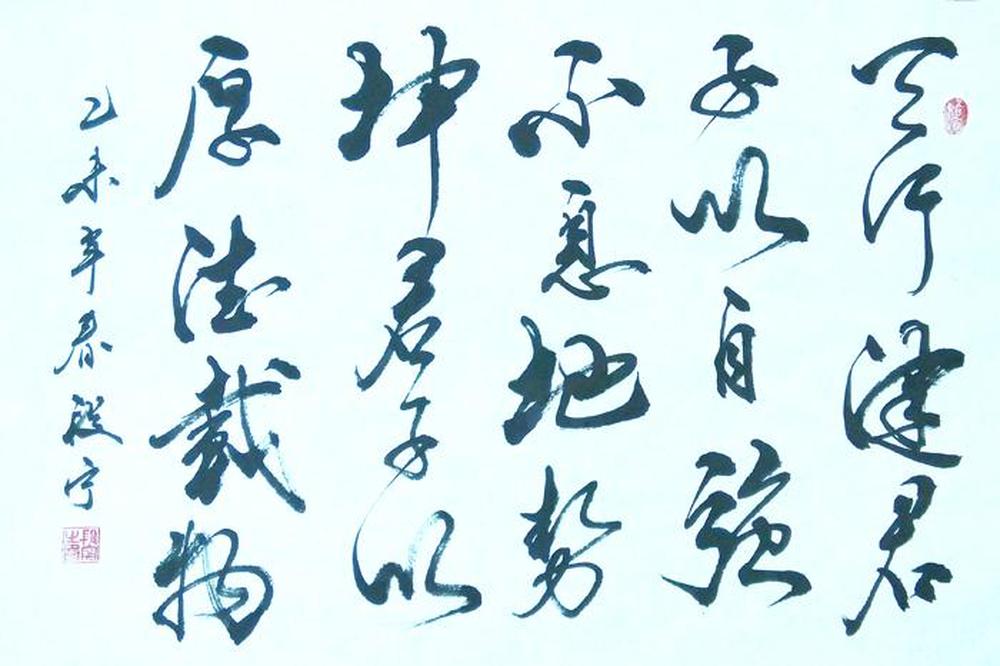 天行健君
子以自强
不息地势
坤君子以
厚德载物
乙未年春段宁